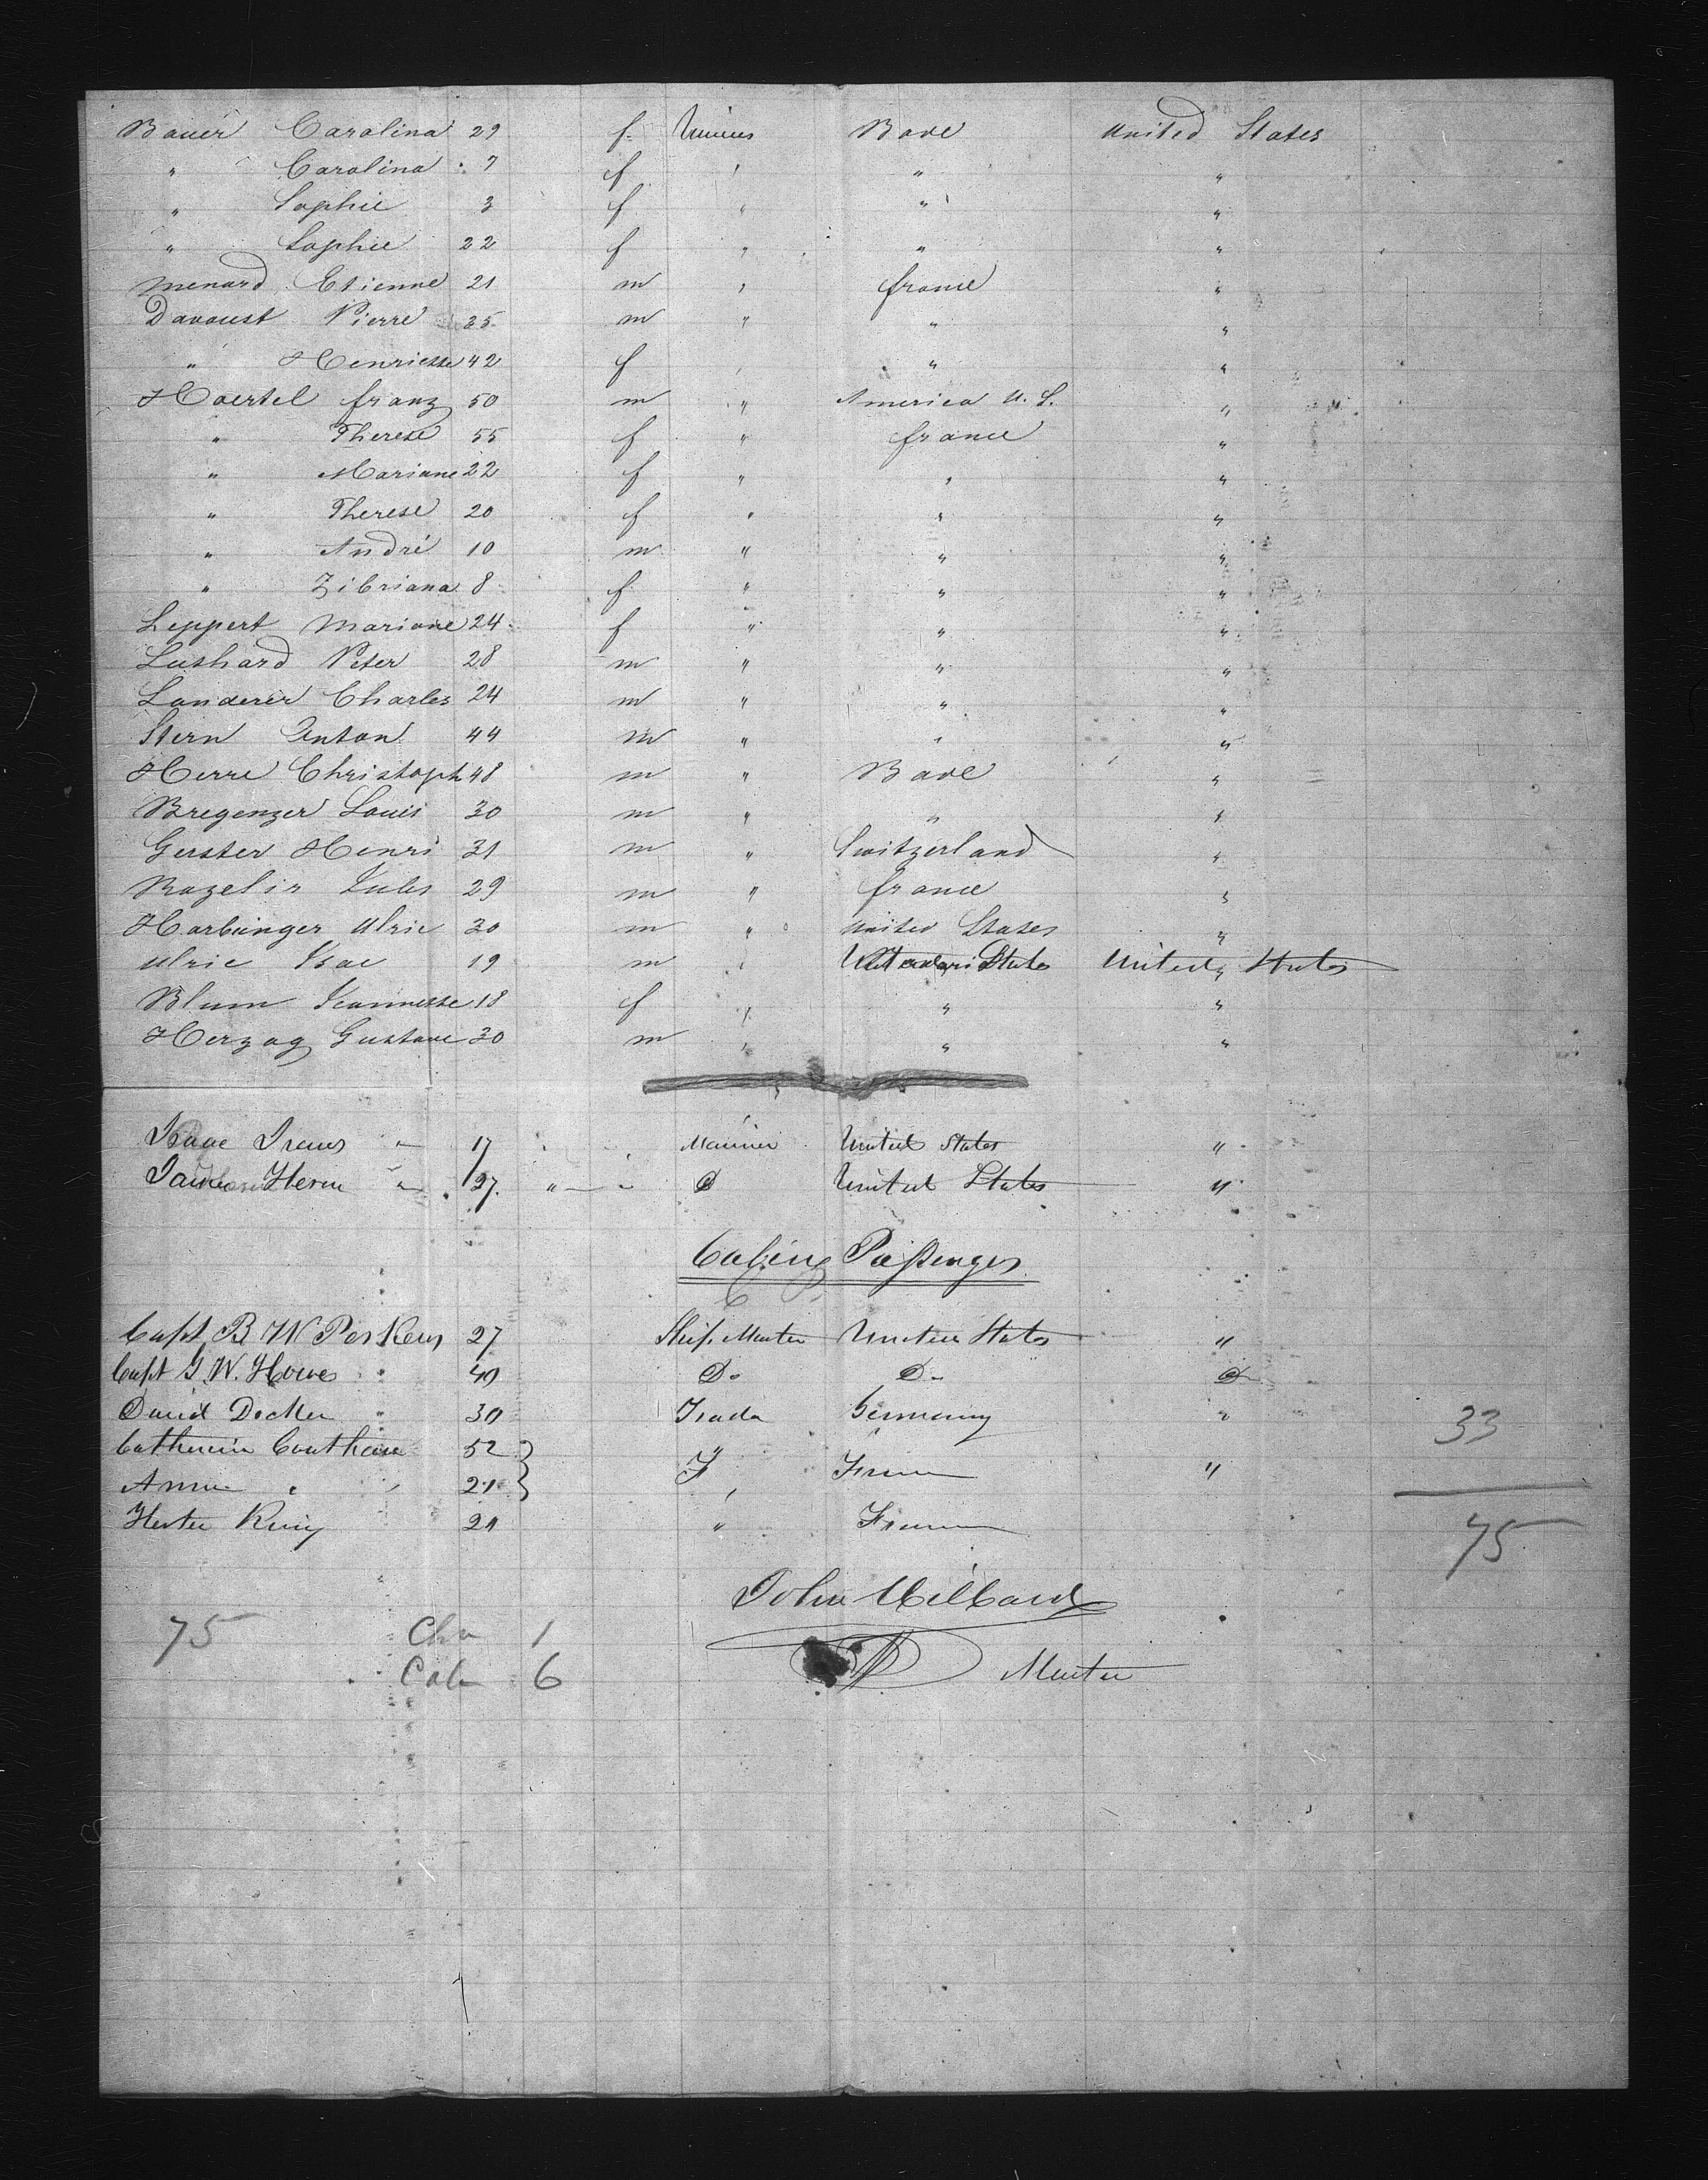 Bauer Carolina 29 f. Bade United States
" Carolina 7 f " " "
" Sophie 3 f " " "
" Sophie 22 f " " "
Menard Etienne 21 m " france "
Davoust Pierre 35 m " " "
" Henriette 42 f " " "
Haertel franz 50 m " America U. S. "
" Therese 55 f " france "
" Mariane 22 f " " "
" Therese 20 f " " "
" André 10 m " " "
" Zibriana 8 f " " "
Leppert Mariane 24 f " " "
Lushard Peter 28 m " " "
Landerer Charles 24 m " " "
Stern Anton 44 m " " "
Herre Christoph 48 m " Bade "
Bregenzer Louis 30 m " " "
Gerster Henri 31 m " Switzerland "
Bazelir Jules 29 m " france "
Harbinger Ulric 30 m " United States "
Ulric Isac 19 m " States United States
Blum Jeannette 18 f " " "
Herzog Gustave 30 m " " "
Isaac 17 Mariner United States "
James 27 " D United States "
Cabin Passenger
Capt B W Perkens 27 Ship Master United States "
Capt G. W. Howes 40 Do Do Do
David Decker 30 Germany " 33
Catherine 52 F France "
Anna " 21 "
King 21 " France 75
John Milbard
75 Chn 1
Cabn 6 Master